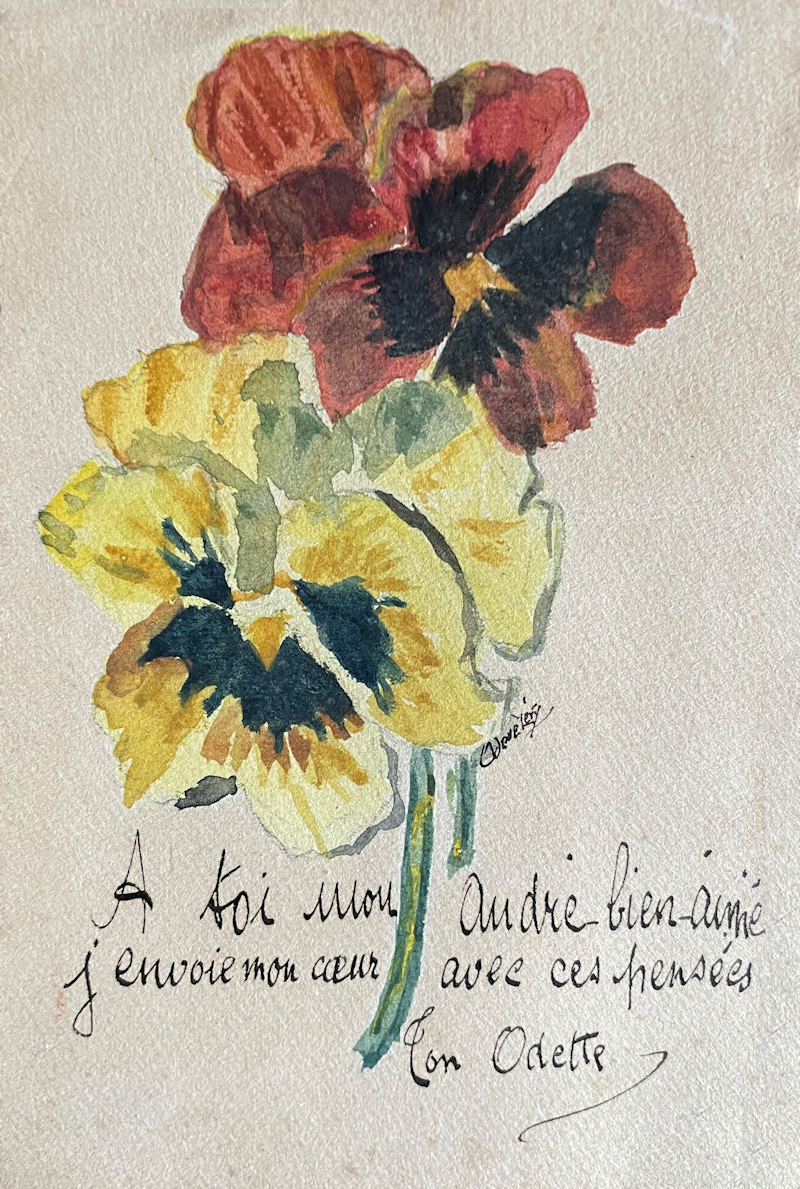 A toi mon andre bien-aimé
j'envoie mon cœur avec ces pensées
Ton Odette